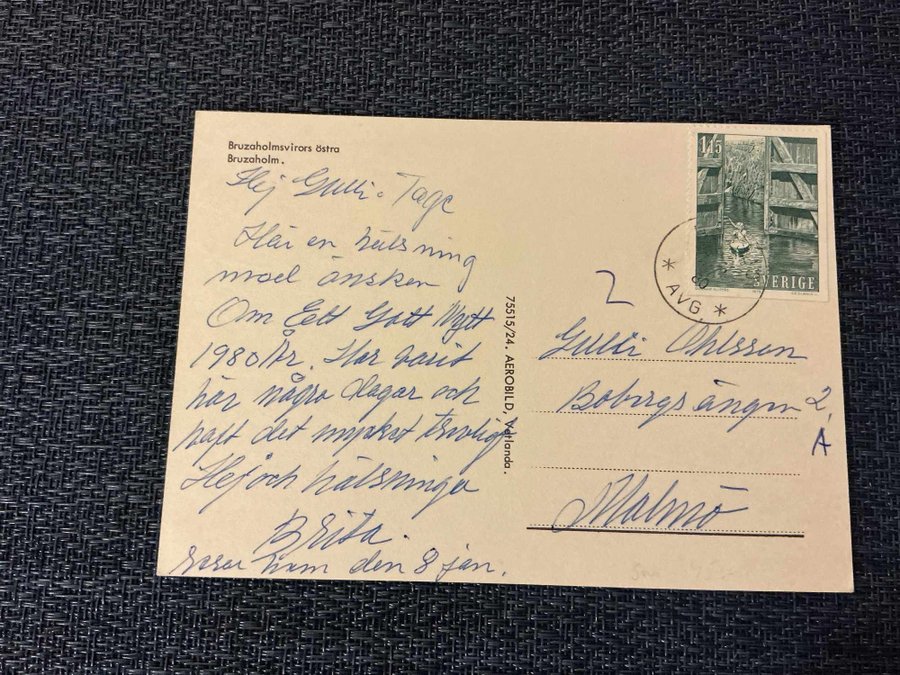 Bruzaholmsvirors östra
Bruzaholm.
Hej Gulli. Tage
Här en hälsning
med önsken
Om Ett Gott Nytt
1980 År. Har varit
här några dagar och
haft det mycket trevligt
Hej och hälsninga
Brita.
Reser hem den 8 jan.
75515/24. AEROBILD, Vetlanda.
1.15
SVERIGE
80
* AVG. *
2
Gulli Ohlsson
Bobergsängen 2,
A
Malmö